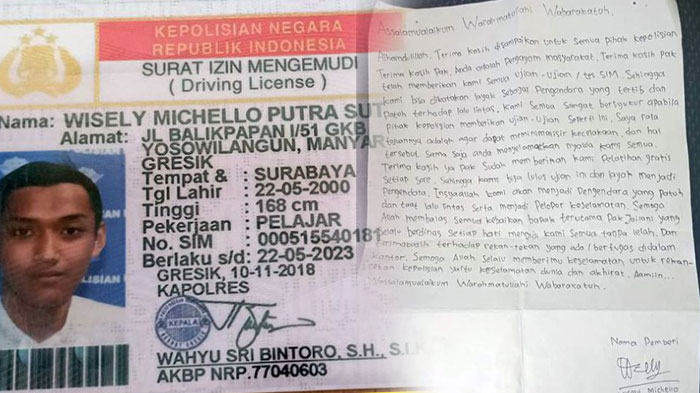 KEPOLISIAN NEGARA
REPUBLIK INDONESIA
SURAT IZIN MENGEMUDI
( Driving License )
Nama: WISELY MICHELLO PUTRA SUT
Alamat: JL BALIKPAPAN I/51 GKB
YOSOWILANGUN, MANYAR
GRESIK
Tempat & : SURABAYA
Tgl Lahir : 22-05-2000
Tinggi : 168 cm
Pekerjaan : PELAJAR
No. SIM : 000515540181
Berlaku s/d: 22-05-2023
GRESIK, 10-11-2018
KAPOLRES
KEPALA
WAHYU SRI BINTORO, S.H., S.I.K
AKBP NRP.77040603
Assalamualaikum Warahmatullahi Wabarakatuh.
Alhamdulillah. Terima kasih disampaikan untuk semua pihak kepolisian
Terima kasih Pak, Anda adalah Pengayom masyarakat. Terima kasih Pak
telah memberikan kami semua Ujian - Ujian / tes SIM. Sehingga
kami bisa dikatakan layak sebagai Pengendara yang tertib dan
patuh terhadap lalu lintas, kami semua sangat bersyukur apabila
pihak kepolisian memberikan Ujian - Ujian seperti ini, saya rasa
tujuannya adalah agar dapat meminimalisir kecelakaan, dan hal
tersebut sama saja anda menyelamatkan nyawa kami semua.
Terima kasih ya Pak sudah memberikan kami Pelatihan gratis
setiap sore. Sehingga kami bisa lulus ujian ini dan layak menjadi
Pengendara, Insyaallah kami akan menjadi Pengendara yang patuh
dan taat lalu lintas serta menjadi Pelopor keselamatan. Semoga
Allah membalas semua kebaikan bapak terutama Pak Jailani yang
selalu berdinas setiap hari menguji kami semua tanpa lelah. Dan
terimakasih terhadap rekan-rekan yang ada / bertugas didalam
kantor. Semoga Allah selalu memberimu keselamatan untuk rekan-
rekan kepolisian yaitu keselamatan dunia dan akhirat. Aamiin...
Wassalamualaikum Warahmatullahi Wabarakatuh.
Nama Pemberi
Michello